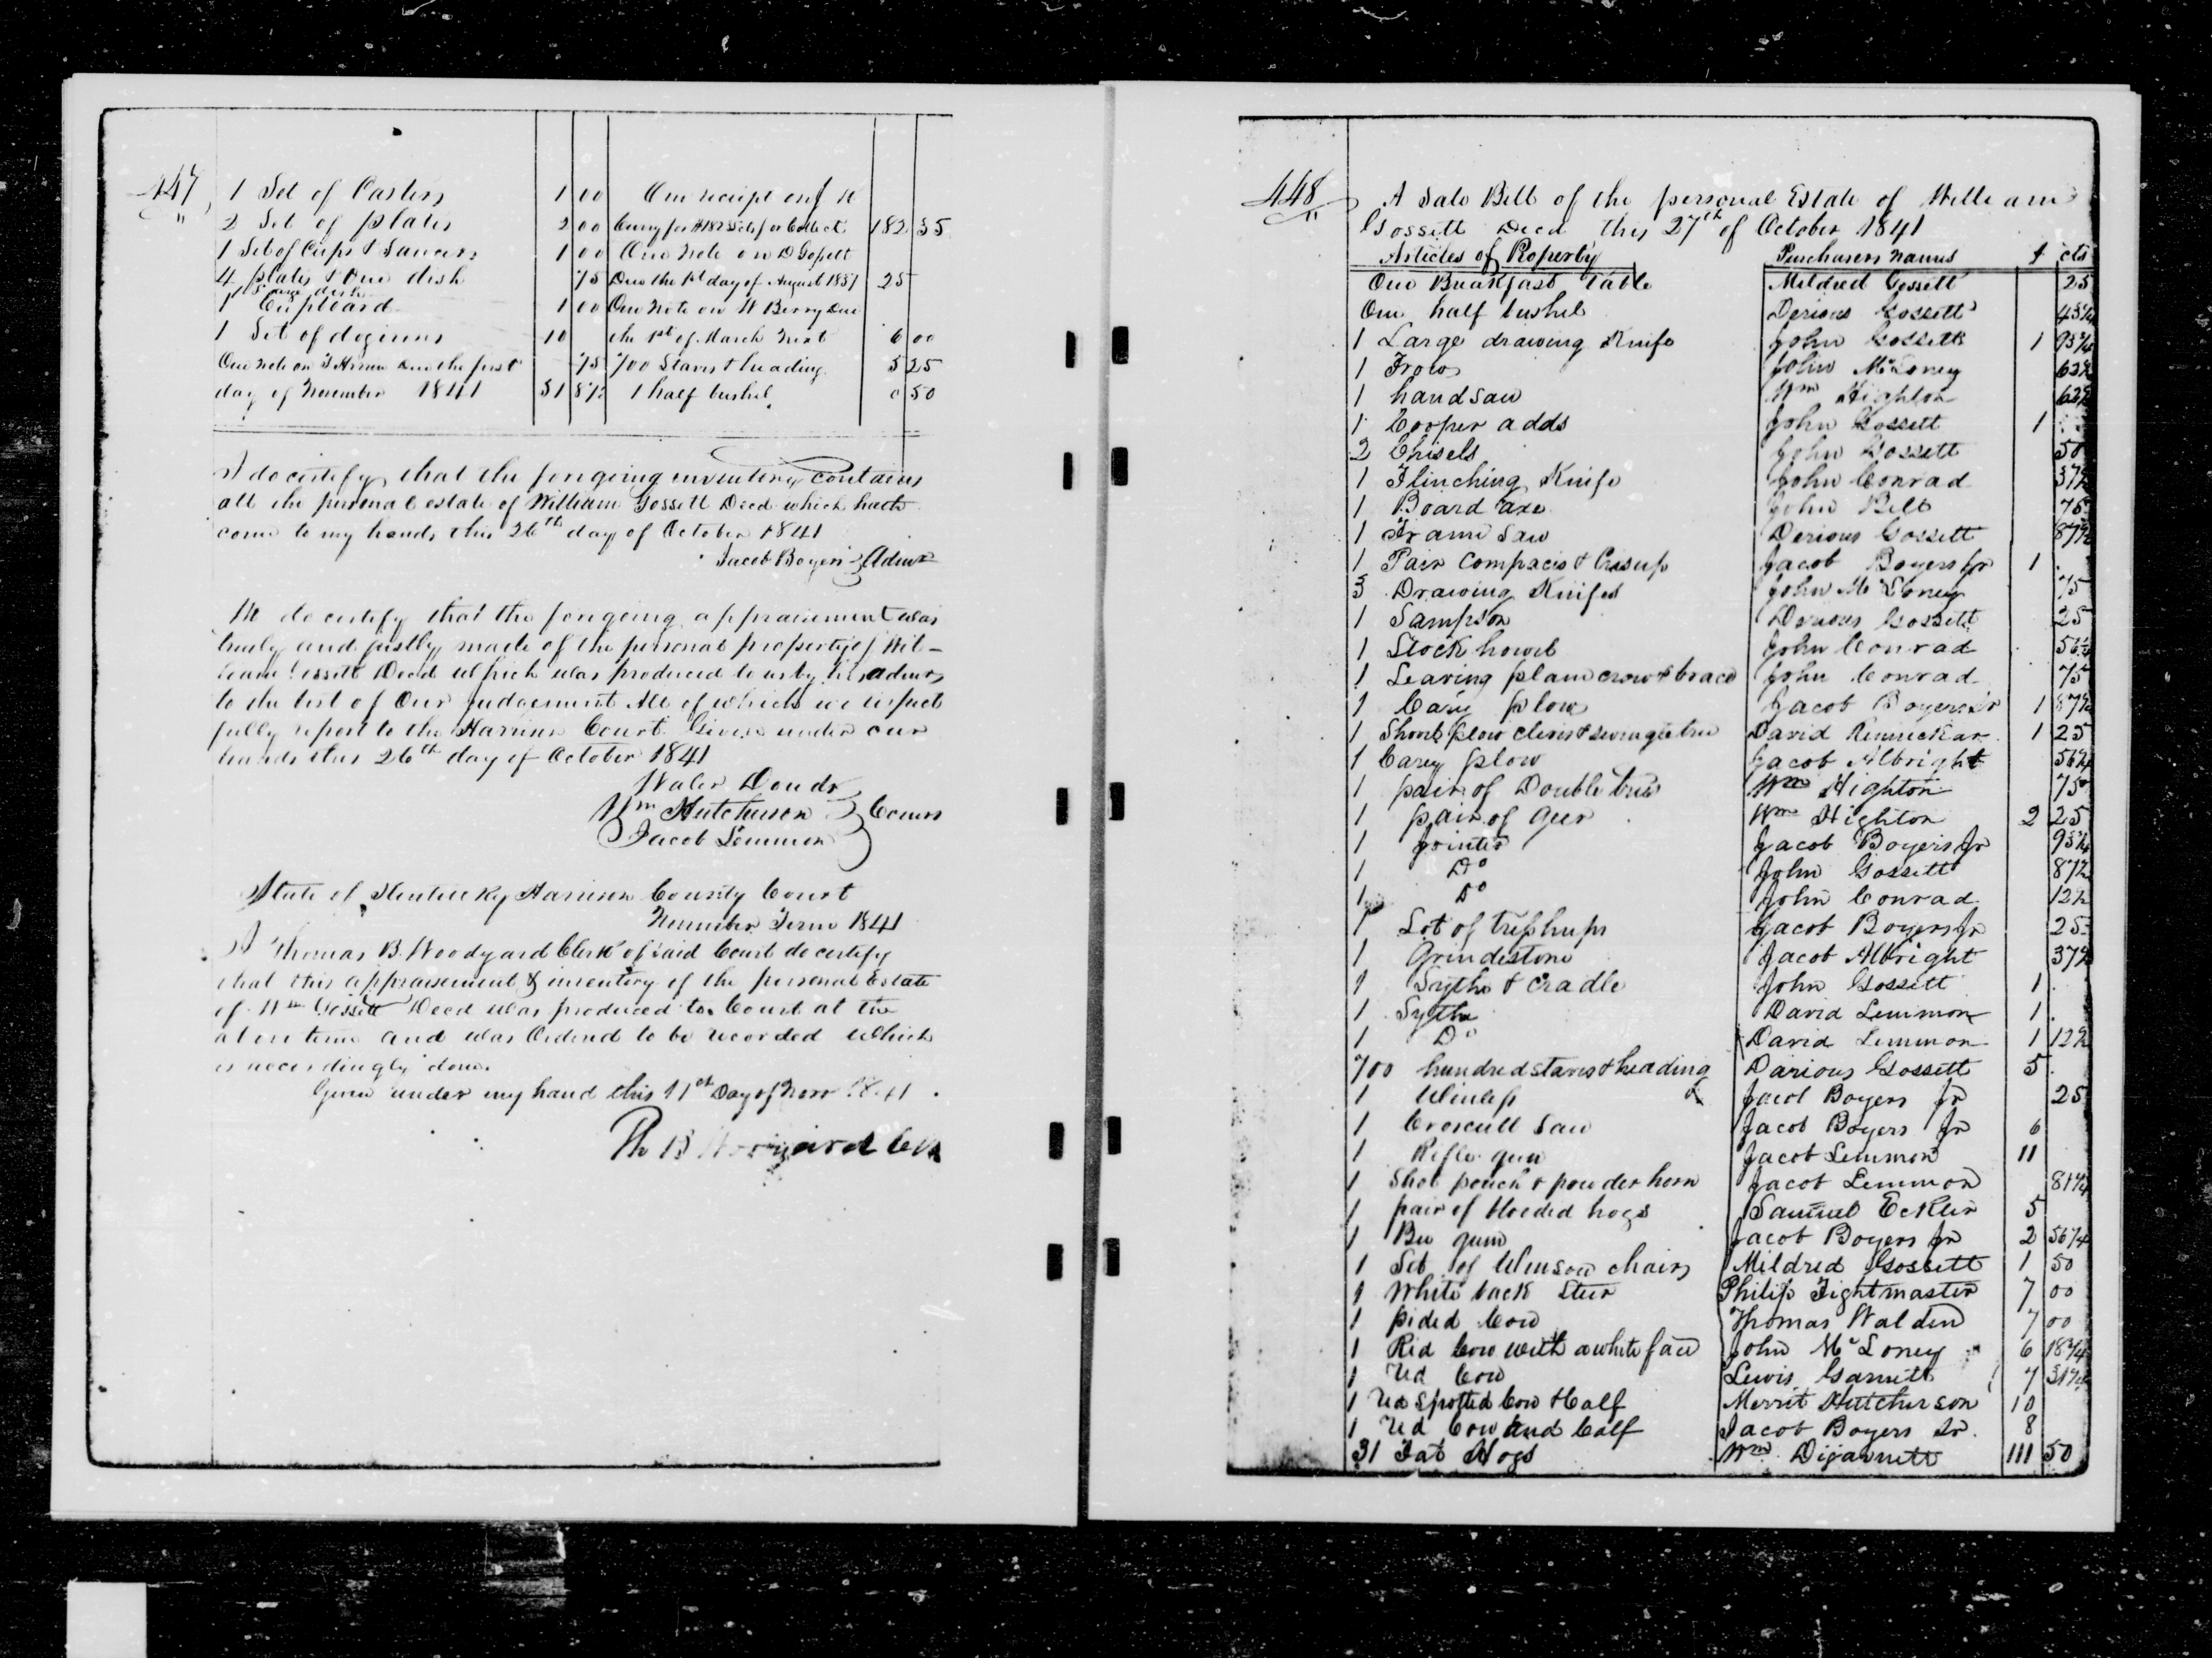 447
1 Set of Casters 1 00
2 Set of plates 2 00
1 Set of Cups & Saucers 1 00
4 plates & One dish 75
1 large dish
1 Cupboard 1 00
1 Set of 10
One note on due the first 75
day of November 1841 51 8½
One receipt on
for Collect 182 35
One note on D Gossett
Due the 1st day of August 1837 25
One note on W Berry due
the 1st of March next 6 00
700 Staves & heading 5 25
1 half bushel 0 50
I do certify that the forgoing inventory contains
all the personal estate of William Gossett Decd which hath
come to my hands this 26th day of October 1841
Jacob Boyers Admr
We do certify that the forgoing appraisement was
truly and justly made of the personal property of Wil-
liam Gossett Decd which was produced to us by his admr
to the best of Our judgement All of which we respect
fully report to the Harrison Court Given under our
hands this 26th day of October 1841
Douds
Wm Hutcherson
Jacob Lemmon
Comrs
State of Kentucky Harrison County Court
November Term 1841
I Thomas B. Woodyard Clerk of said Court do certify
that this appraisement & inventory of the personal Estate
of Wm Gossett Decd was produced to Court at the
above time and was Ordered to be recorded which
is accordingly done.
Given under my hand this 11th Day of Novr 1841
Th B Woodyard Clk
448
A Sale Bill of the personal Estate of William
Gossett Decd this 27th of October 1841
Articles of Property Purchasers names $ cts
One Breakfast Table Mildred Gossett 25
One half bushel Derious Gossett 43¾
1 Large drawing Knife John Gossett 1 93¾
1 Frow John McLoney 62½
1 hand saw Wm Highton 62½
1 Cooper adds John Gossett 1
2 Chisels John Gossett 50
1 Flinching Knife John Conrad 37½
1 Board axe John Bell 75
1 Frame Saw Derious Gossett 87½
1 Pair Compaces & Jacob Boyers Jr 1
3 Drawing Knifes John McLoney 75
1 Sampson Derious Gossett 25
1 Stock howel John Conrad 56¼
1 Leaving plane crow & brace John Conrad 75
1 Cary plow Jacob Boyers Sr 1 87½
1 Shovel plow clevis & swingletree David Rennickar 1 25
1 Carey plow Jacob Albright 56¼
1 pair of Double trees Wm Highton 75
1 pair of Geer Wm Highton 2 25
1 Jointer Jacob Boyers Jr 93¾
1 Do John Gossett 87½
1 Do John Conrad 12½
1 Lot of Jacob Boyers Jr 25
1 Grindestone Jacob Albright 37½
1 Sythe & Cradle John Gossett 1
1 Sythe David Lemmon 1
1 Do David Lemmon 1 12½
700 hundred staves & heading Darious Gossett 5
1 Jacob Boyers Jr 25
1 Croscutt Saw Jacob Boyers Jr 6
1 Rifle gun Jacob Lemmon 11
1 Shot pouch & powder horn Jacob Lemmon 81¼
1 pair of hogs Samuel Eckler 5
1 Bee gum Jacob Boyers Jr 2 56¼
1 Set of Winsor chairs Mildred Gossett 1 50
1 White back Steer Philip Fightmaster 7 00
1 pided Cow Thomas Walden 7 00
1 Red Cow with a white face John McLoney 6 18¾
1 Red Cow Lewis Garnett 7 31¼
1 Red Spotted Cow & Calf Merrit Hutcherson 10
1 Red Cow and Calf Jacob Boyers Sr. 8
31 Fat Hogs Wm Dijarnett 111 50